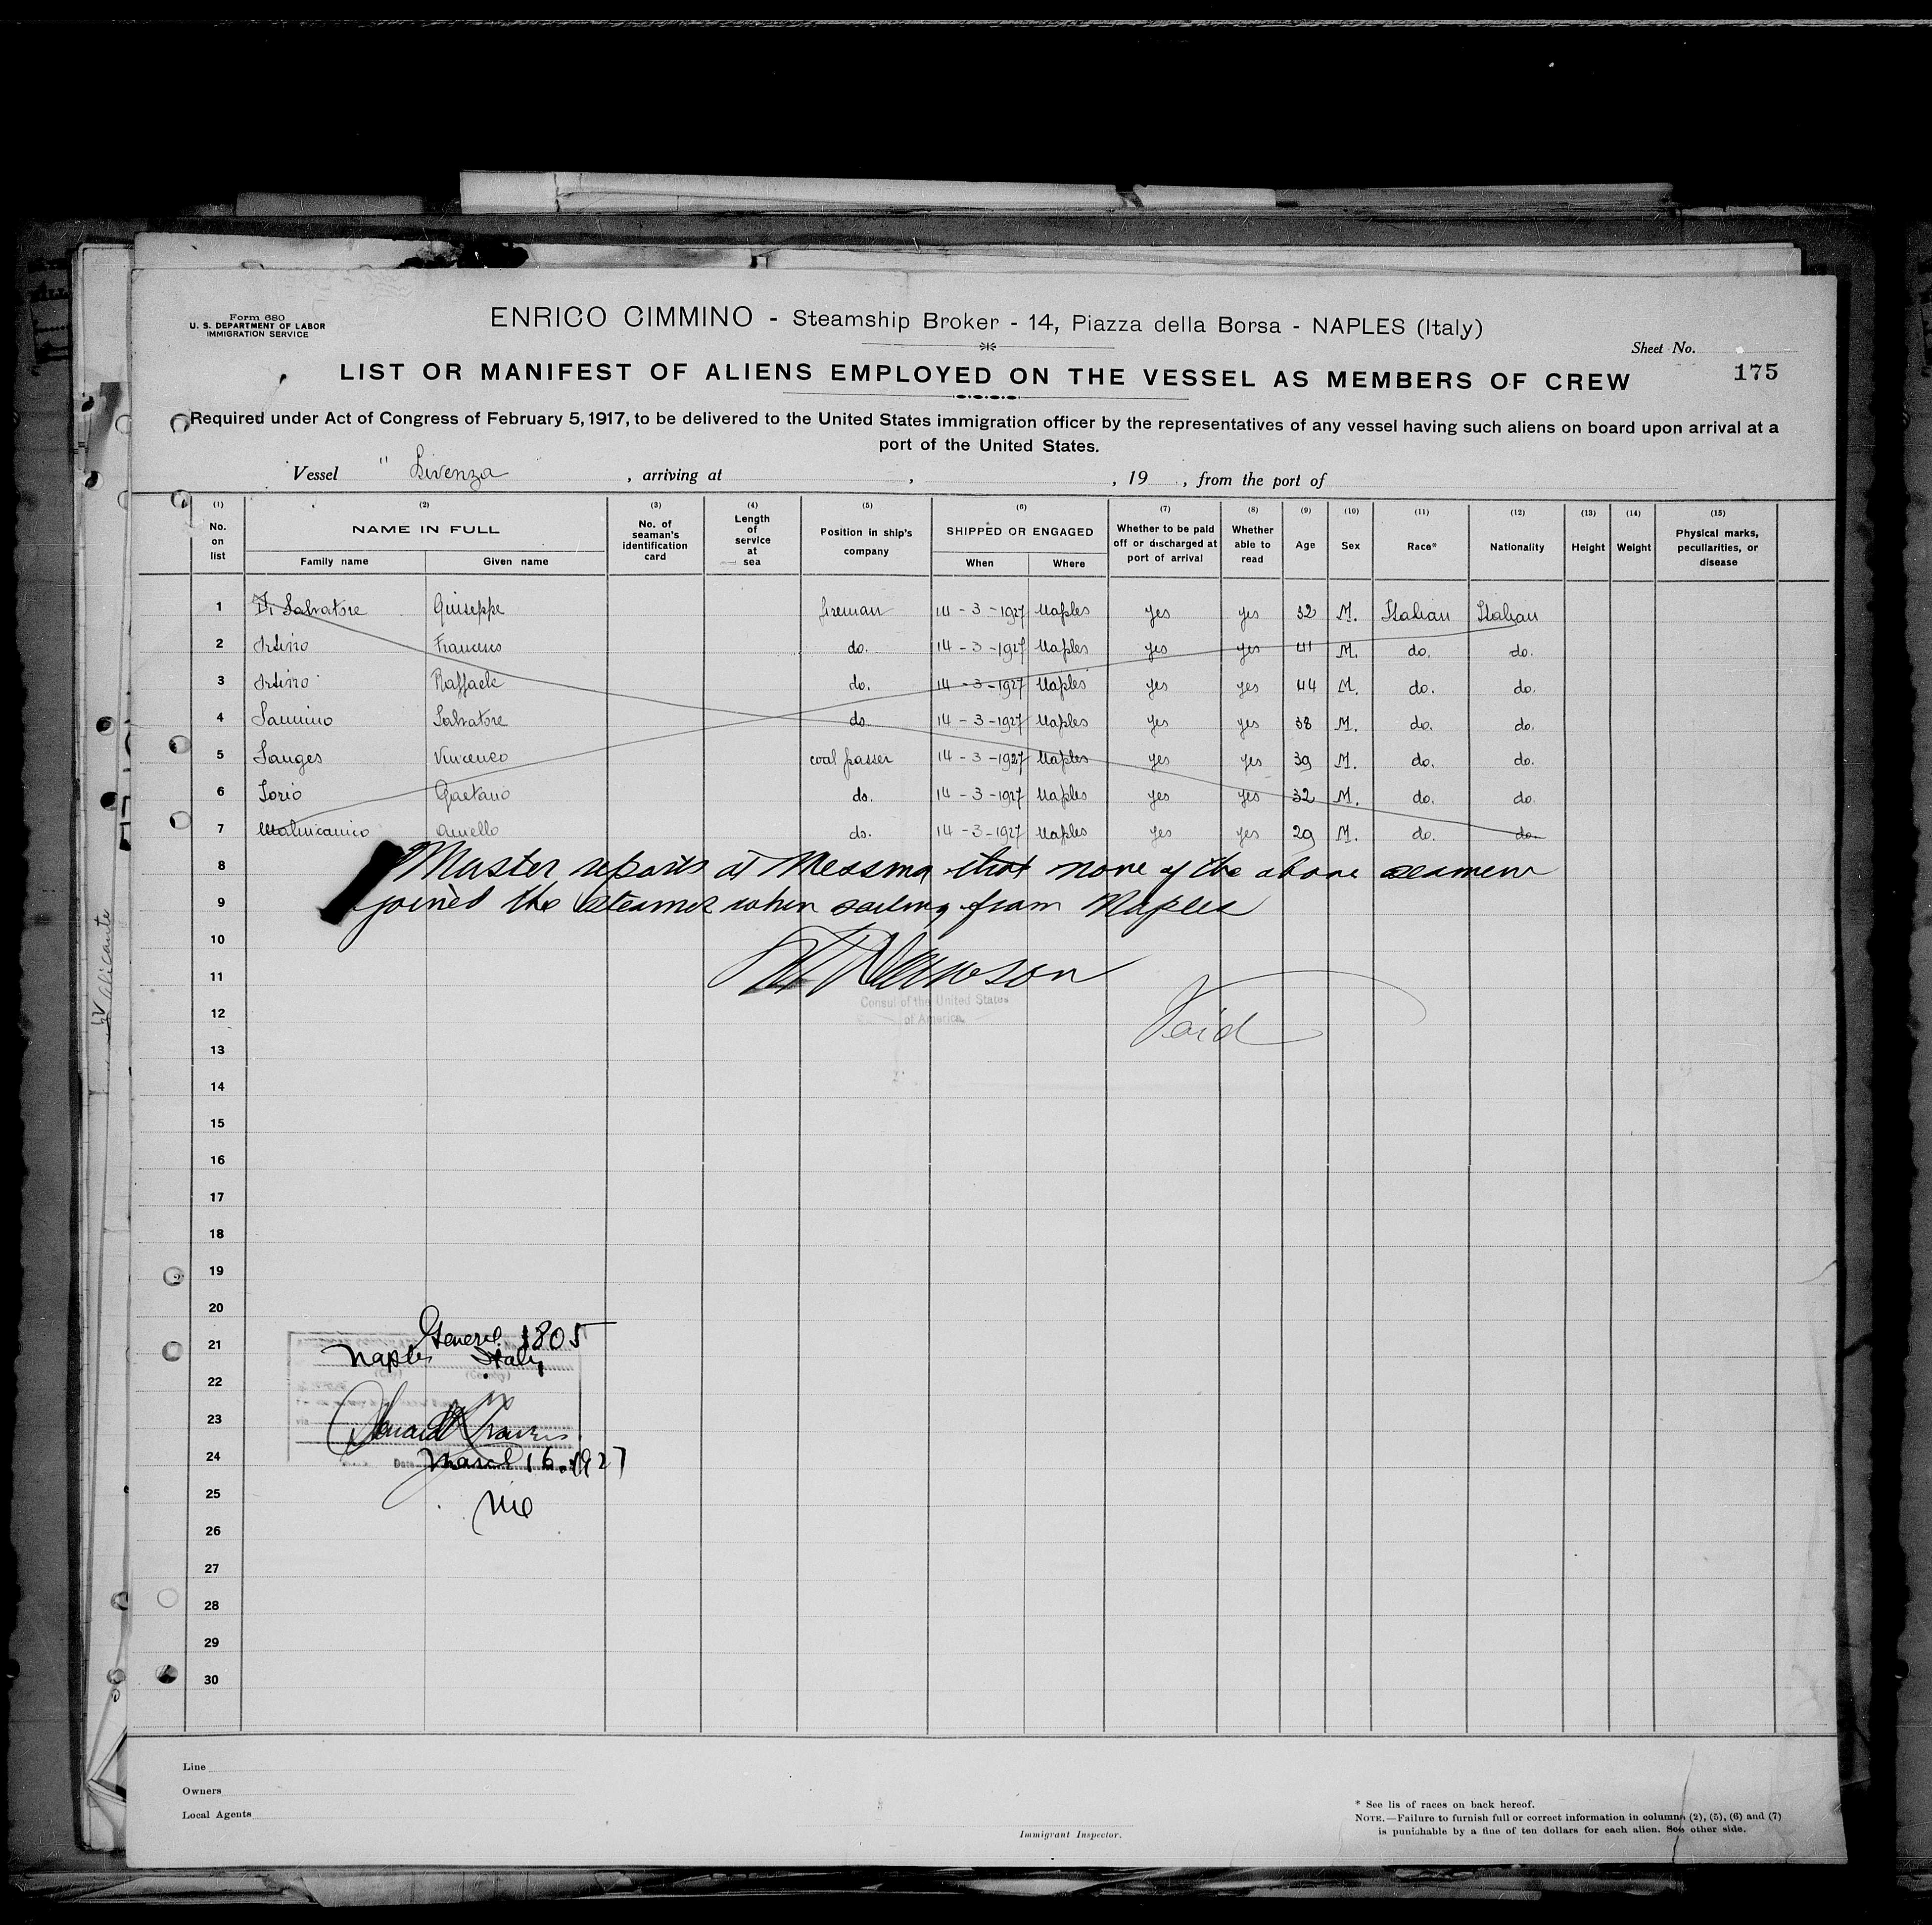 Form 680
U. S. DEPARTMENT OF LABOR
IMMIGRATION SERVICE
ENRICO CIMMINO - Steamship Broker - 14, Piazza della Borsa - NAPLES (Italy)
Sheet No.
175
LIST OR MANIFEST OF ALIENS EMPLOYED ON THE VESSEL AS MEMBERS OF CREW
Required under Act of Congress of February 5, 1917, to be delivered to the United States immigration officer by the representatives of any vessel having such aliens on board upon arrival at a
port of the United States.
Vessel " Livenza , arriving at , , 19 , from the port of
(1) (2) (3) (4) (5) (6) (7) (8) (9) (10) (11) (12) (13) (14) (15)
No. on list NAME IN FULL Family name Given name No. of seaman's identification card Length of service at sea Position in ship's company SHIPPED OR ENGAGED When Where Whether to be paid off or discharged at port of arrival Whether able to read Age Sex Race* Nationality Height Weight Physical marks, peculiarities, or disease
1 Di Salvatore Giuseppe fireman 14-3-1927 Naples yes yes 32 M. Italian Italian
2 Francesco do. 14-3-1927 Naples yes yes 41 M. do. do.
3 Raffaele do. 14-3-1927 Naples yes yes 44 M. do. do.
4 Sannino Salvatore do. 14-3-1927 Naples yes yes 38 M. do. do.
5 Sanges Vincenzo coal passer 14-3-1927 Naples yes yes 39 M. do. do.
6 Iorio Gaetano do. 14-3-1927 Naples yes yes 32 M. do. do.
7 Malincanico Aniello do. 14-3-1927 Naples yes yes 29 M. do. do.
8 Master reports at Messina that none of the above seamen
9 joined the steamer when sailing from Naples
10
11
12 Consul of the United States of America. Void
13
14
15
16
17
18
19
20
21 General 1805
Naples Italy
(City) (Country)
22
23
24 Date March 16. 1927
25
26
27
28
29
30
Line
Owners
Local Agents
Immigrant Inspector.
* See lis of races on back hereof.
NOTE.—Failure to furnish full or correct information in columns (2), (5), (6) and (7)
is punishable by a fine of ten dollars for each alien. See other side.
Alicante